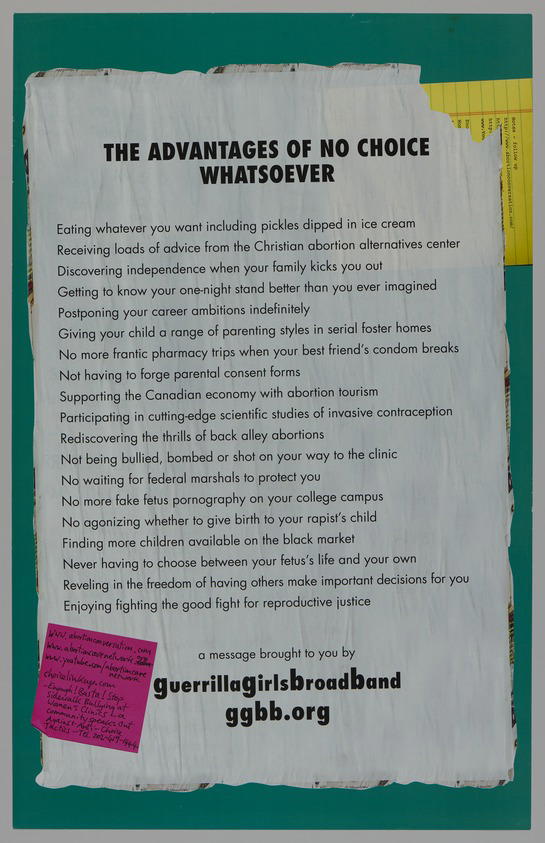 THE ADVANTAGES OF NO CHOICE
WHATSOEVER
Eating whatever you want including pickles dipped in ice cream
Receiving loads of advice from the Christian abortion alternatives center
Discovering independence when your family kicks you out
Getting to know your one-night stand better than you ever imagined
Postponing your career ambitions indefinitely
Giving your child a range of parenting styles in serial foster homes
No more frantic pharmacy trips when your best friend's condom breaks
Not having to forge parental consent forms
Supporting the Canadian economy with abortion tourism
Participating in cutting-edge scientific studies of invasive contraception
Rediscovering the thrills of back alley abortions
Not being bullied, bombed or shot on your way to the clinic
No waiting for federal marshals to protect you
No more fake fetus pornography on your college campus
No agonizing whether to give birth to your rapist's child
Finding more children available on the black market
Never having to choose between your fetus's life and your own
Reveling in the freedom of having others make important decisions for you
Enjoying fighting the good fight for reproductive justice
a message brought to you by
guerrillagirlsbroadband
ggbb.org
notes - follow up
www.abortionconversation.com
www.youtube.com/abortioncare
network
choicelinkup.com
-Enough! Basta! Stop
Sidewalk Bullying at
Women's Clinics
Community speaks out
Against Anti-Choice
Tactics - Tel